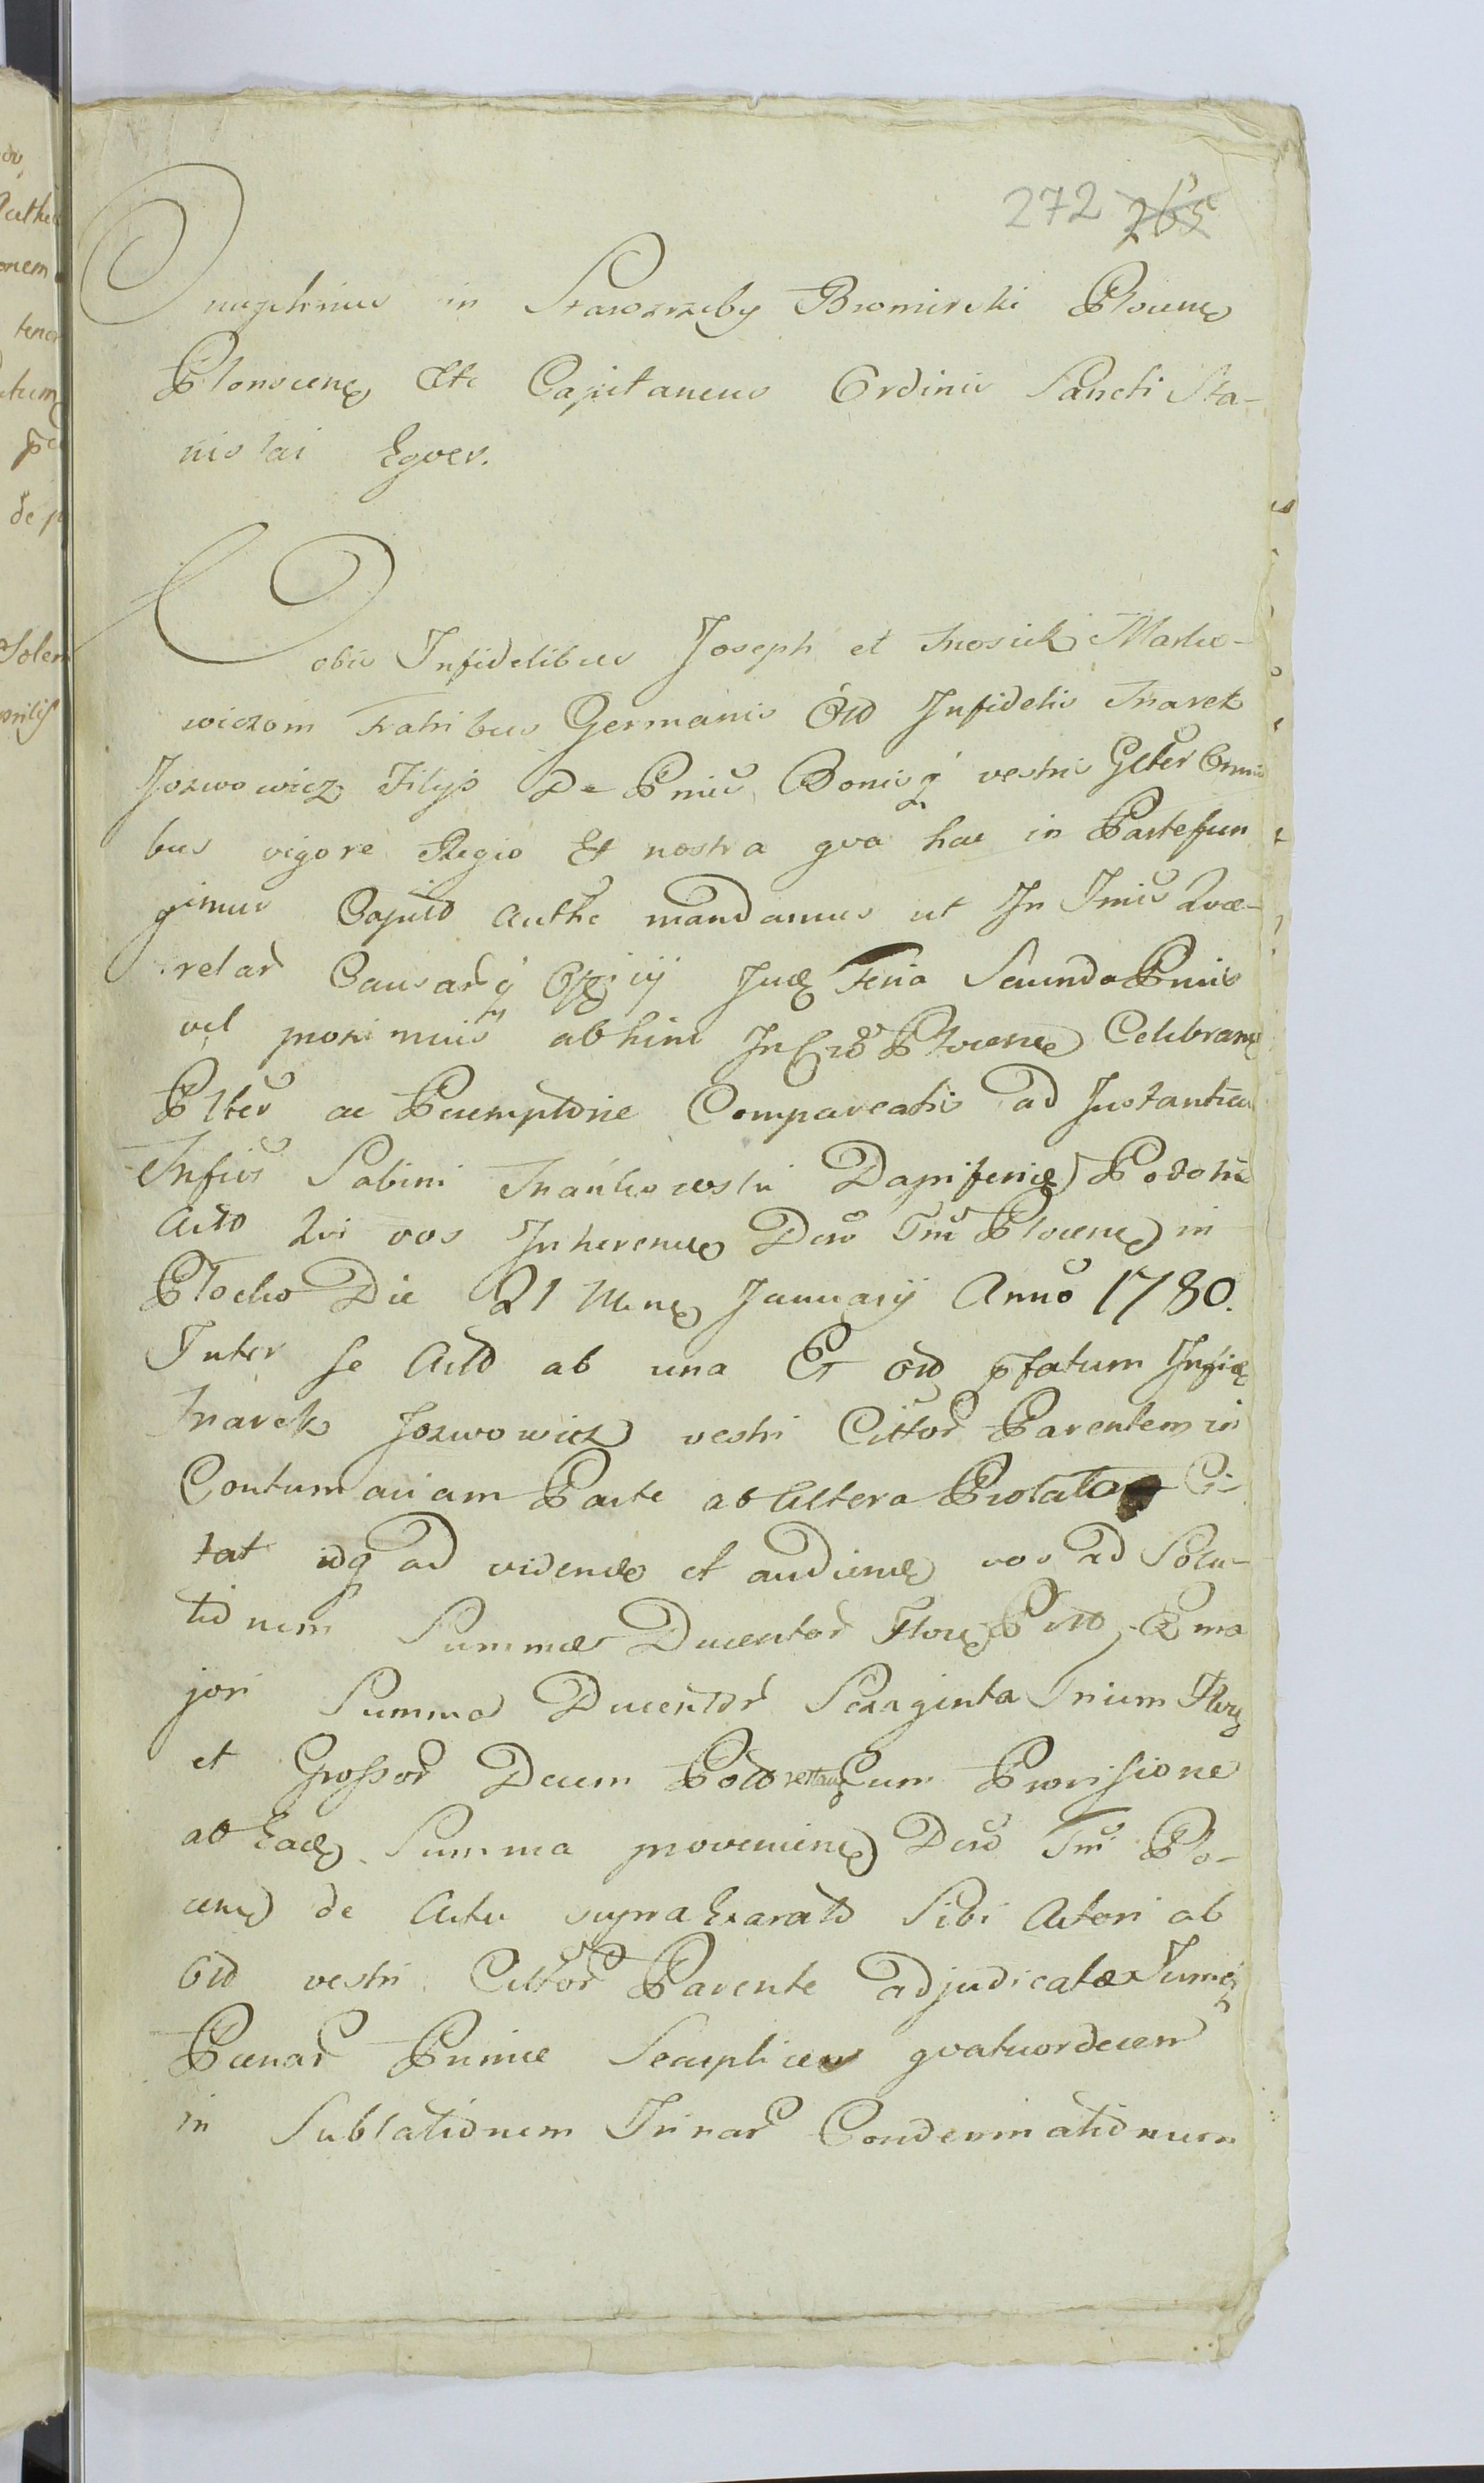 272 265
Onuphrius in Starozrzeby Bromirski Plocens
Plonscens Etc Capitaneus Ordinis Sancti Sta-
nislai Eques.
Vobis Infidelibus Joseph et Mosiek Marko-
wiczom Fratribus Germanis Olo Infidelis Marek
Jozwowicz Filijs De Pnis Bonisq vestris Glter Omni
bus vigore Regio Et nostra qva hac in Parte fun
gimur Captli Authe mandamus ut In Jmis Qvæ-
relar Causarq Officij Jud Feria Secunda Pmis
vel proximius abhinc In Cro Plocense Celebran
Plter ac Peremptorie Compareatis ad Instantiam
Gnfici Sabini Dapiferid Podolie
Acto Qvi vos Inherende Dcro Tri Plocens in
Plocko Die 21 Mens January Anno 1780.
Inter se Acto ab una Et olo pfatum Infid
Marek Jozwowicz vestri Cittor Parentem in
Contumaciam Parte ab Altera Prolato Ci-
tat idq ad vidend et audiend vos ad Solu-
tionem Summæ Ducentor Flor Polo E ma
jori Summa Ducentor Sexaginta Trium Flor
et Grossor Decem Polo restan Cum Provisione
ab Ead Summa provenien Dcro Tri Plo-
cens de Actu supra Exarato Sibi Actori ab
Olo vestri Cittor Parente adjudicatæ Tum
Pænar Primæ Sexuplicis qvatuordecem
in Sublationem Trinar Condemnationum